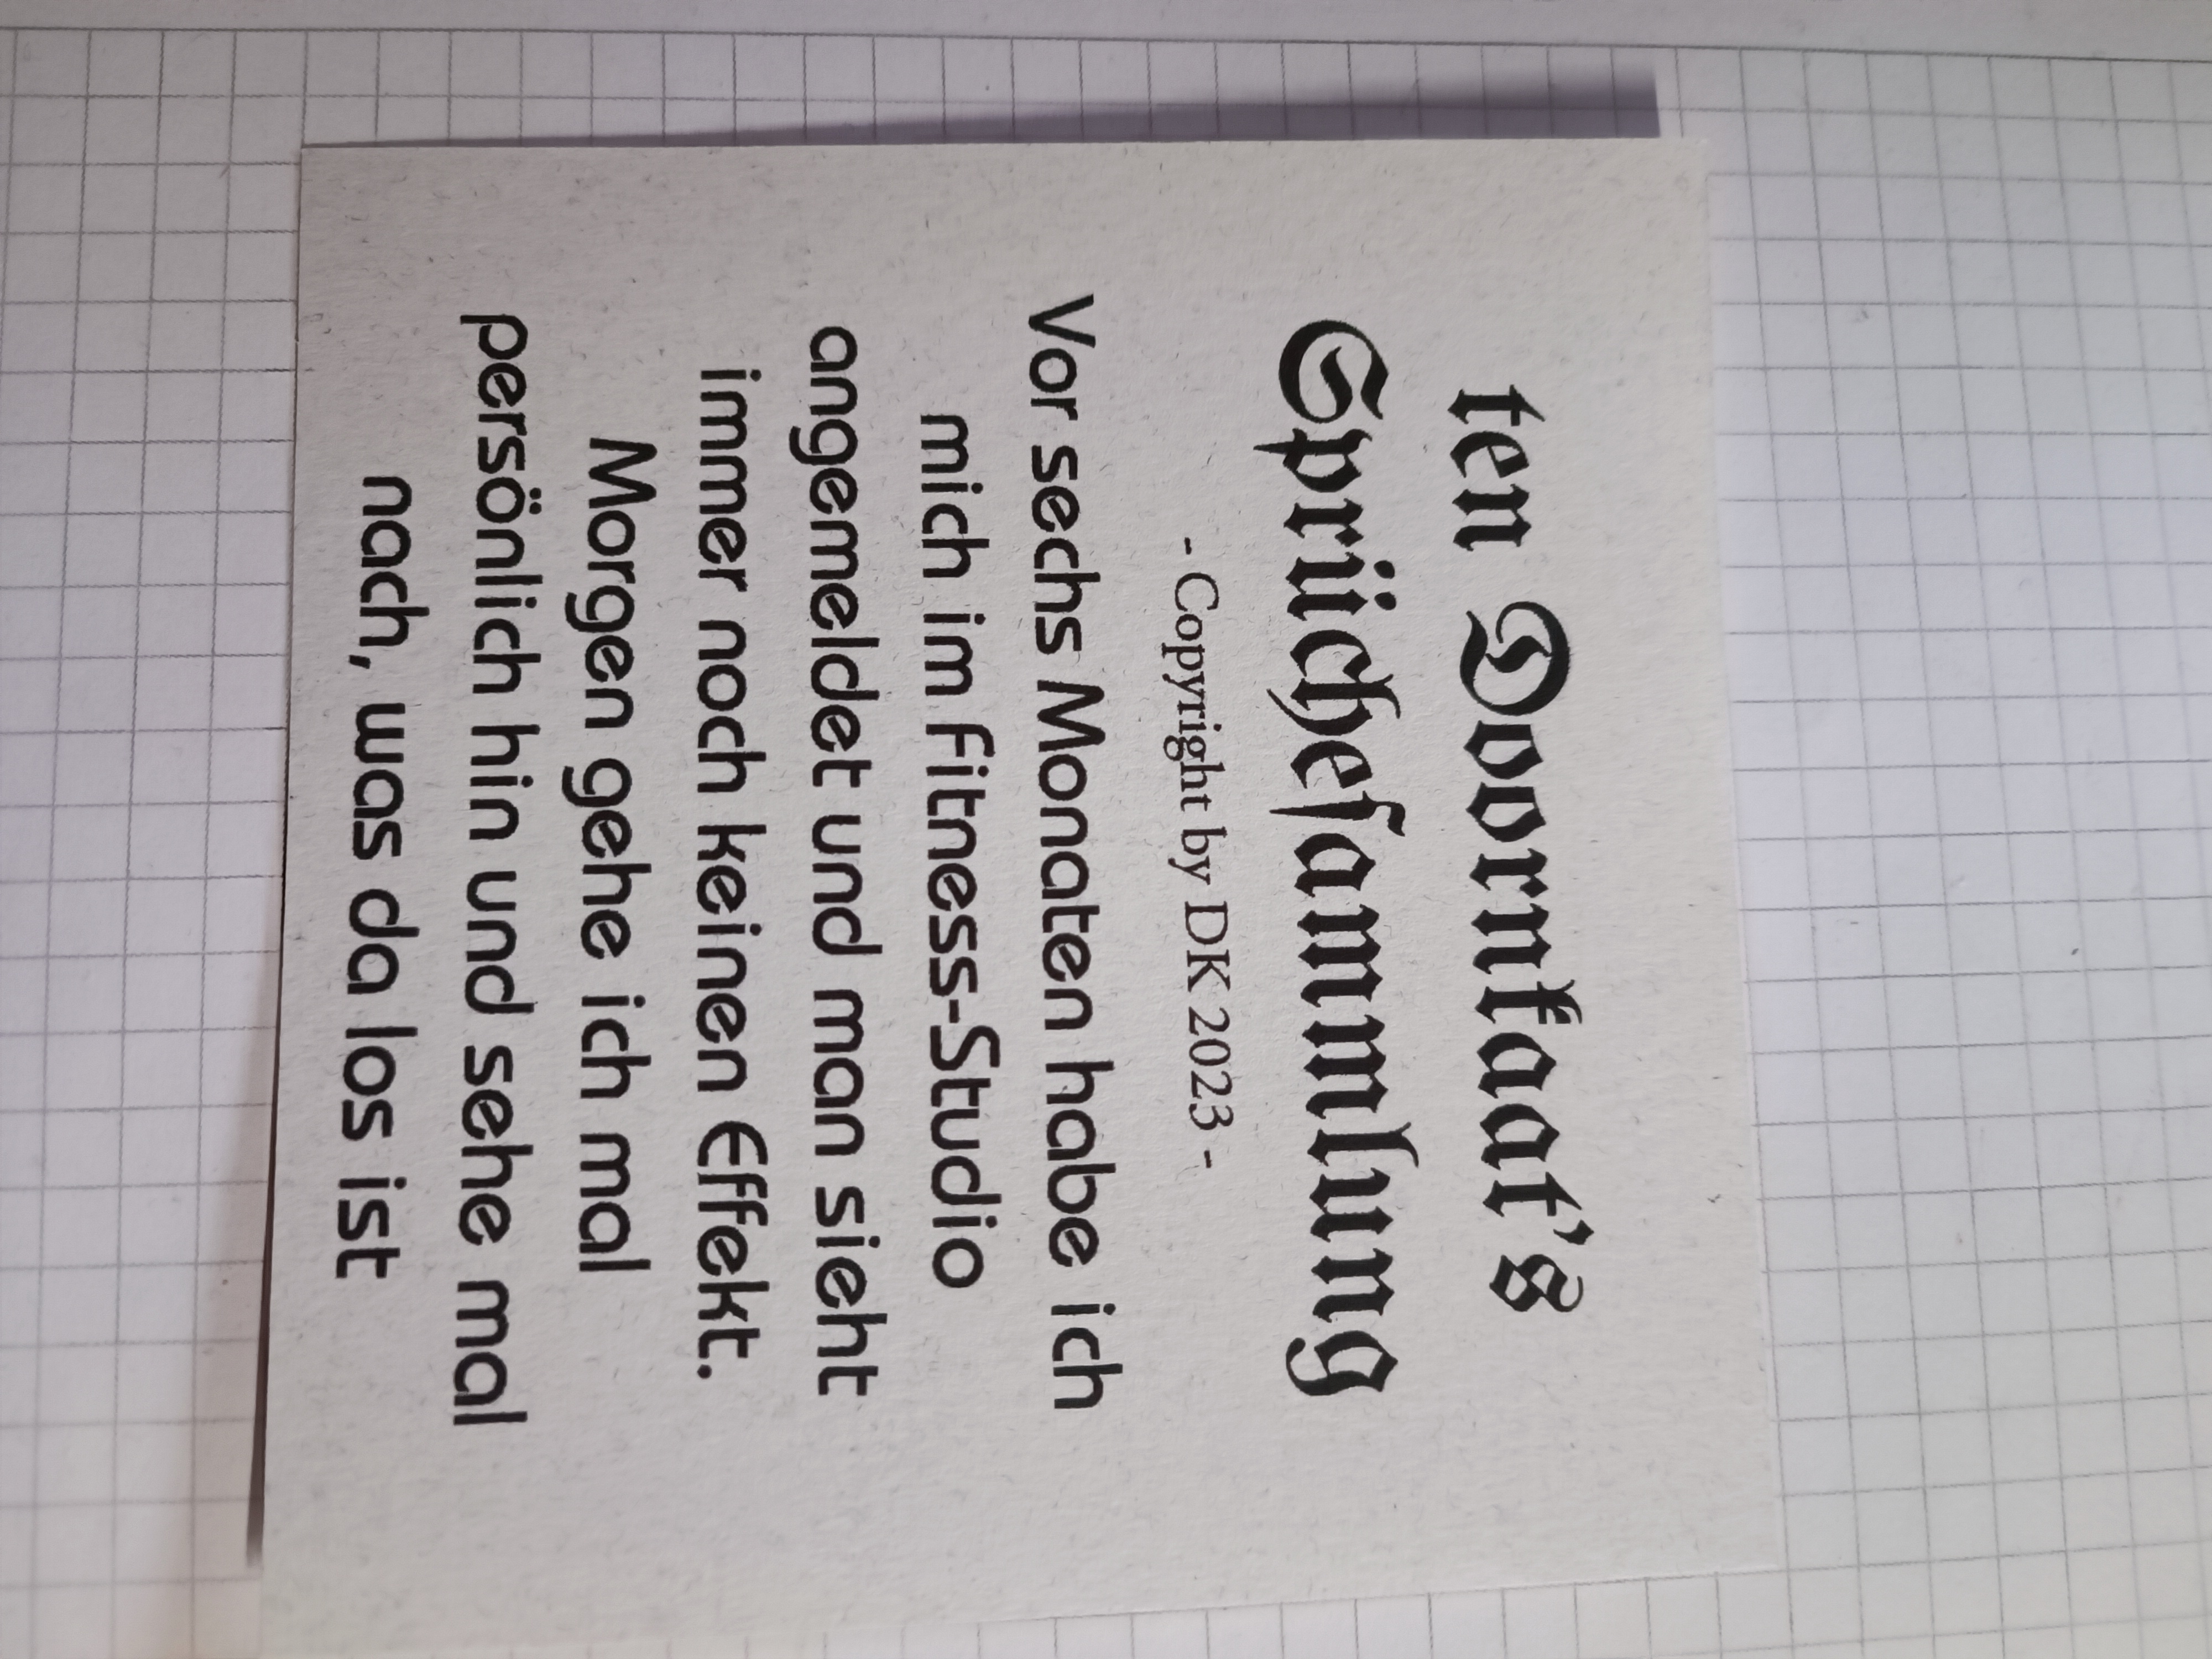 ten Doornkaat's
Sprücheſammlung
- Copyright by DK 2023 -
Vor sechs Monaten habe ich
mich im Fitness-Studio
angemeldet und man sieht
immer noch keinen Effekt.
Morgen gehe ich mal
persönlich hin und sehe mal
nach, was da los ist